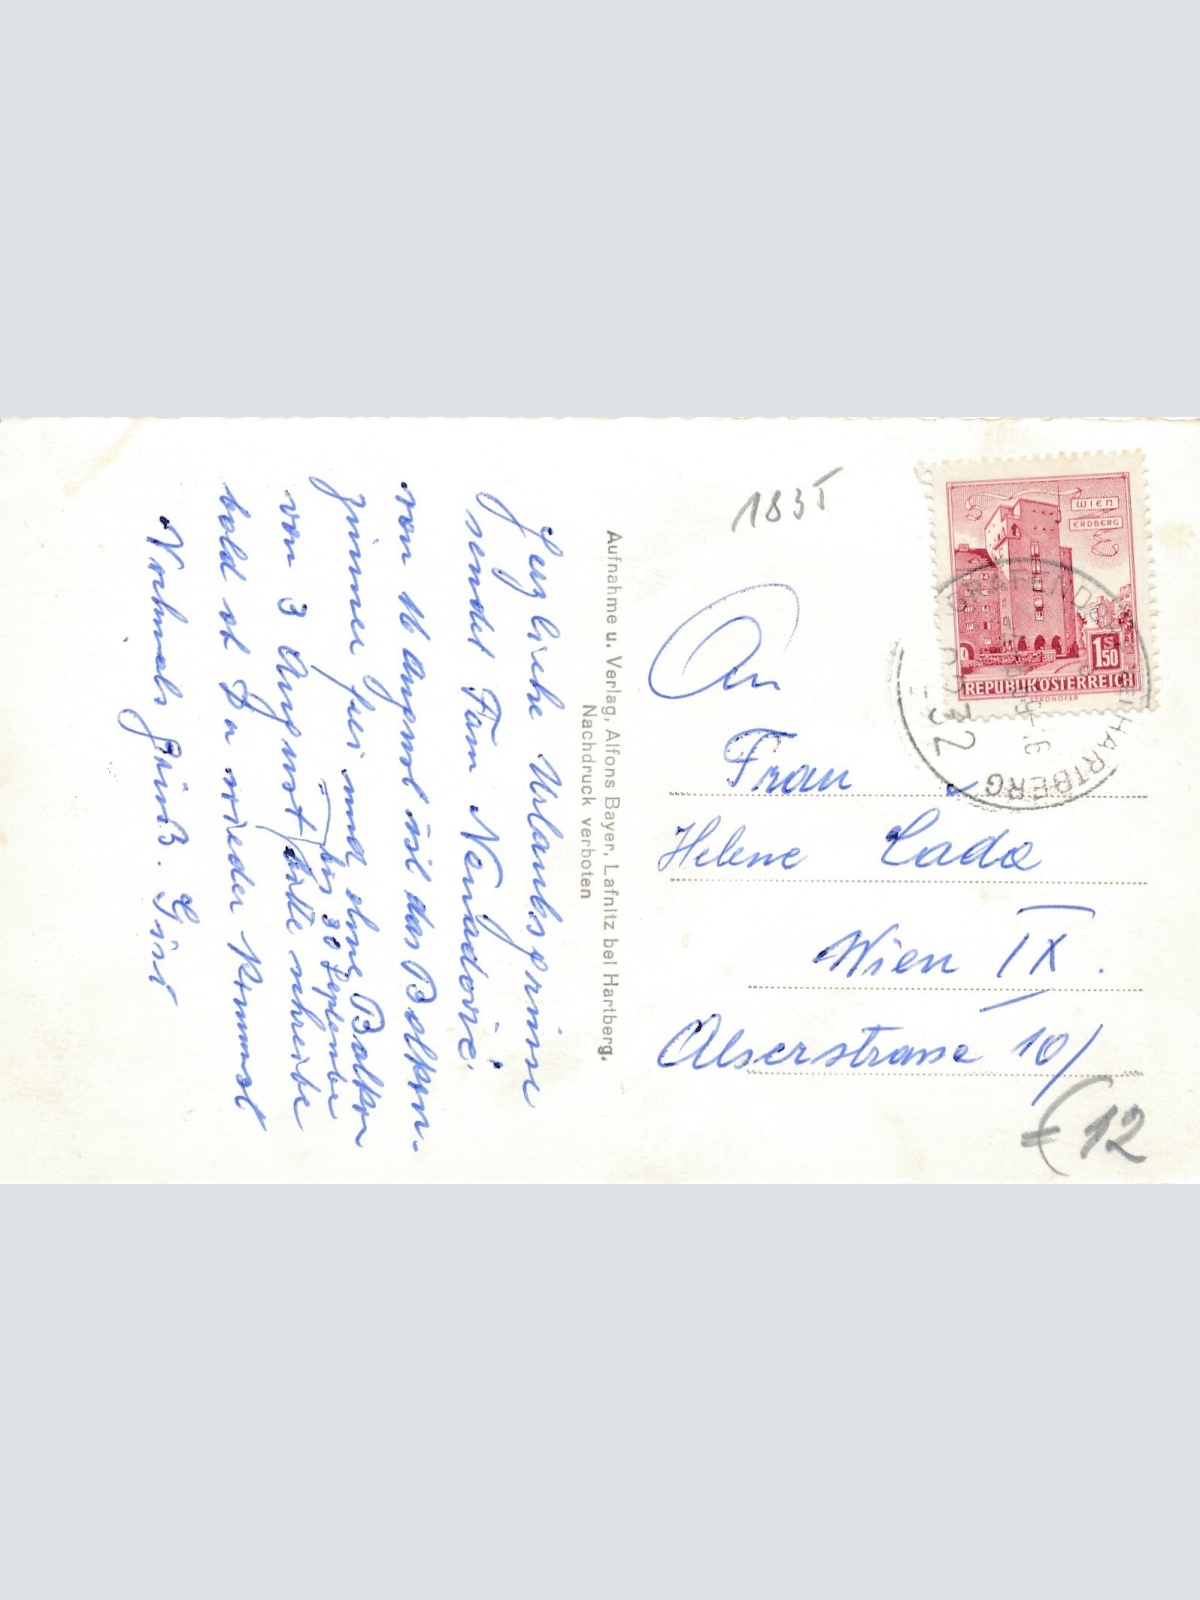 Herzliche Urlaubsgrüsse
sendet Fam
von 16 August ist das Balkon-
zimmer frei und ohne Balkon
von 3 August bitte schreibe
bis 30 Septembe
bald ob Du wieder kommst
Nochmals Grüß.
Aufnahme u. Verlag, Alfons Bayer, Lafnitz bei Hartberg.
Nachdruck verboten
1835
WIEN
ERDBERG
1 S 50
REPUBLIK ÖSTERREICH
HARTBERG
An
Frau
Helene Lada
Wien IX.
Alserstrasse 10/
12